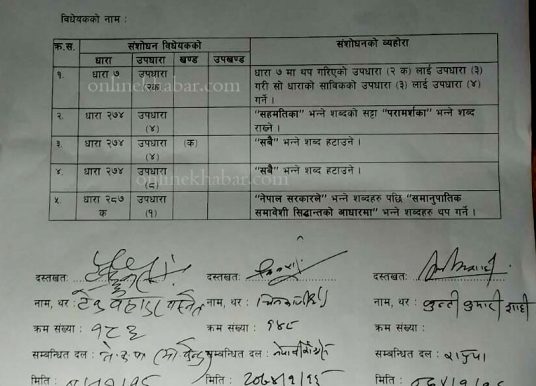 विधेयकको नाम :
क्र.स. संशोधन विधेयकको संशोधनको व्यहोरा
धारा उपधारा खण्ड उपखण्ड
१. धारा ७ उपधारा धारा ७ मा थप गरिएको उपधारा (२ क) लाई उपधारा (३)
२क गरी सो धाराको साविकको उपधारा (३) लाई उपधारा (४)
गर्ने ।
onlinekhabar.com
२. धारा २७४ उपधारा "सहमतिका" भन्ने शब्दको सट्टा "परामर्शका" भन्ने शब्द
(४) राख्ने ।
३. धारा २७४ उपधारा (क) "सबै" भन्ने शब्द हटाउने ।
(४)
४. धारा २७४ उपधारा "सबै" भन्ने शब्द हटाउने ।
(८)
onlinekhabar.com
५. धारा २८७ उपधारा "नेपाल सरकारले" भन्ने शब्दहरु पछि "समानुपातिक
क (१) समावेशी सिद्धान्तको आधारमा" भन्ने शब्दहरु थप गर्ने ।
दस्तखत: दस्तखत: दस्तखत:
नाम, थर : नाम, थर : नाम, थर : कुन्ती कुमारी शाही
क्रम संख्या : क्रम संख्या : क्रम संख्या :
सम्बन्धित दल : सम्बन्धित दल : सम्बन्धित दल :
मिति : मिति : मिति :